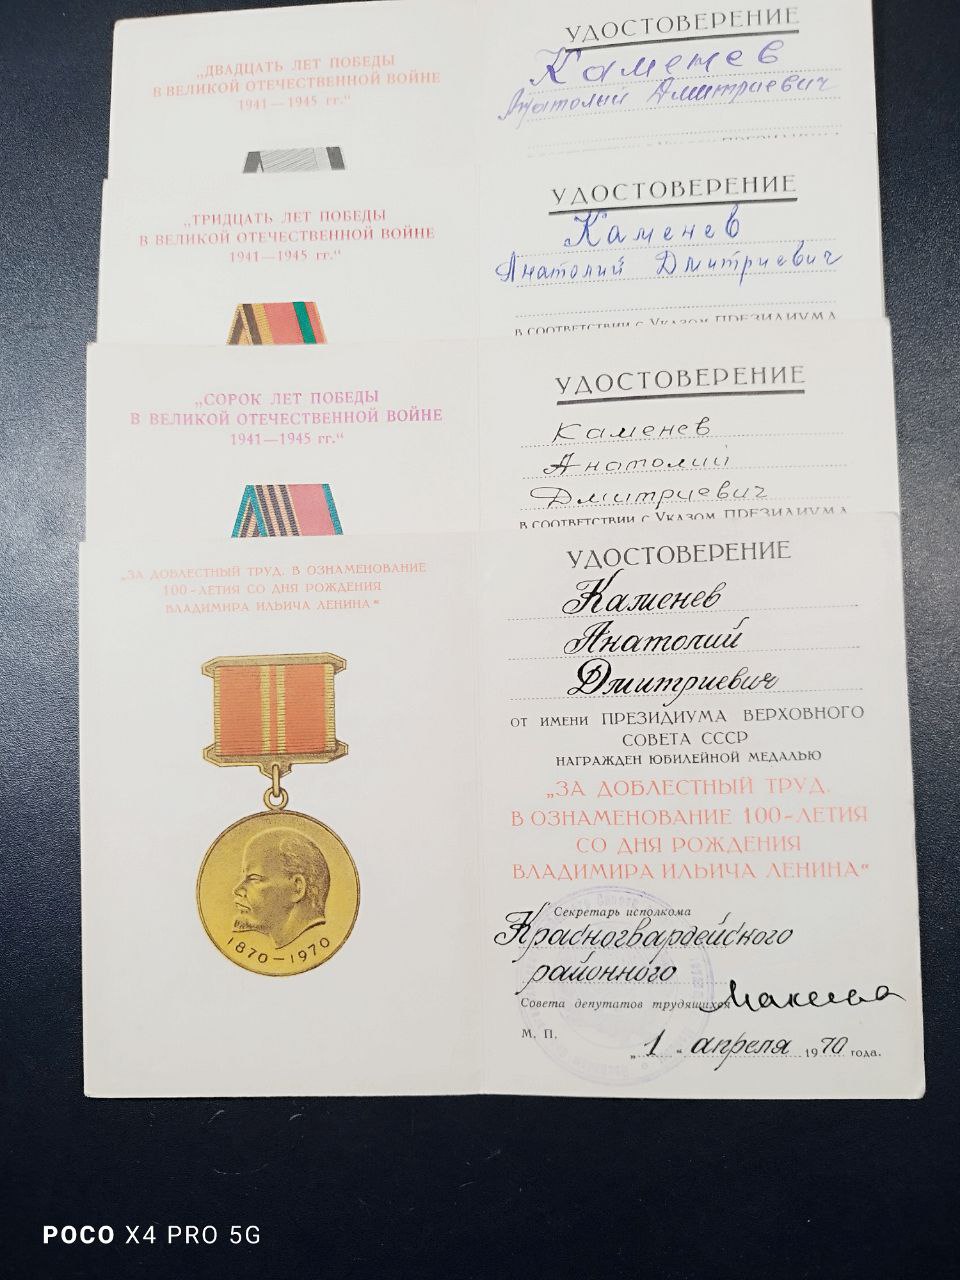 „ДВАДЦАТЬ ЛЕТ ПОБЕДЫ
В ВЕЛИКОЙ ОТЕЧЕСТВЕННОЙ ВОЙНЕ
1941—1945 гг.“
УДОСТОВЕРЕНИЕ
Каменев
Анатолий Дмитриевич
„ТРИДЦАТЬ ЛЕТ ПОБЕДЫ
В ВЕЛИКОЙ ОТЕЧЕСТВЕННОЙ ВОЙНЕ
1941—1945 гг.“
УДОСТОВЕРЕНИЕ
Каменев
Анатолий Дмитриевич
В СООТВЕТСТВИИ с Указом ПРЕЗИДИУМА
„СОРОК ЛЕТ ПОБЕДЫ
В ВЕЛИКОЙ ОТЕЧЕСТВЕННОЙ ВОЙНЕ
1941—1945 гг.“
УДОСТОВЕРЕНИЕ
Каменев
Анатолий
Дмитриевич
В СООТВЕТСТВИИ с Указом ПРЕЗИДИУМА
„ЗА ДОБЛЕСТНЫЙ ТРУД. В ОЗНАМЕНОВАНИЕ
100-ЛЕТИЯ СО ДНЯ РОЖДЕНИЯ
ВЛАДИМИРА ИЛЬИЧА ЛЕНИНА“
1870—1970
УДОСТОВЕРЕНИЕ
Каменев
Анатолий
Дмитриевич
ОТ ИМЕНИ ПРЕЗИДИУМА ВЕРХОВНОГО
СОВЕТА СССР
НАГРАЖДЕН ЮБИЛЕЙНОЙ МЕДАЛЬЮ
„ЗА ДОБЛЕСТНЫЙ ТРУД.
В ОЗНАМЕНОВАНИЕ 100-ЛЕТИЯ
СО ДНЯ РОЖДЕНИЯ
ВЛАДИМИРА ИЛЬИЧА ЛЕНИНА“
Секретарь исполкома
Красногвардейского
районного
Совета депутатов трудящихся
М. П.
„1“ апреля 1970 года.
POCO X4 PRO 5G